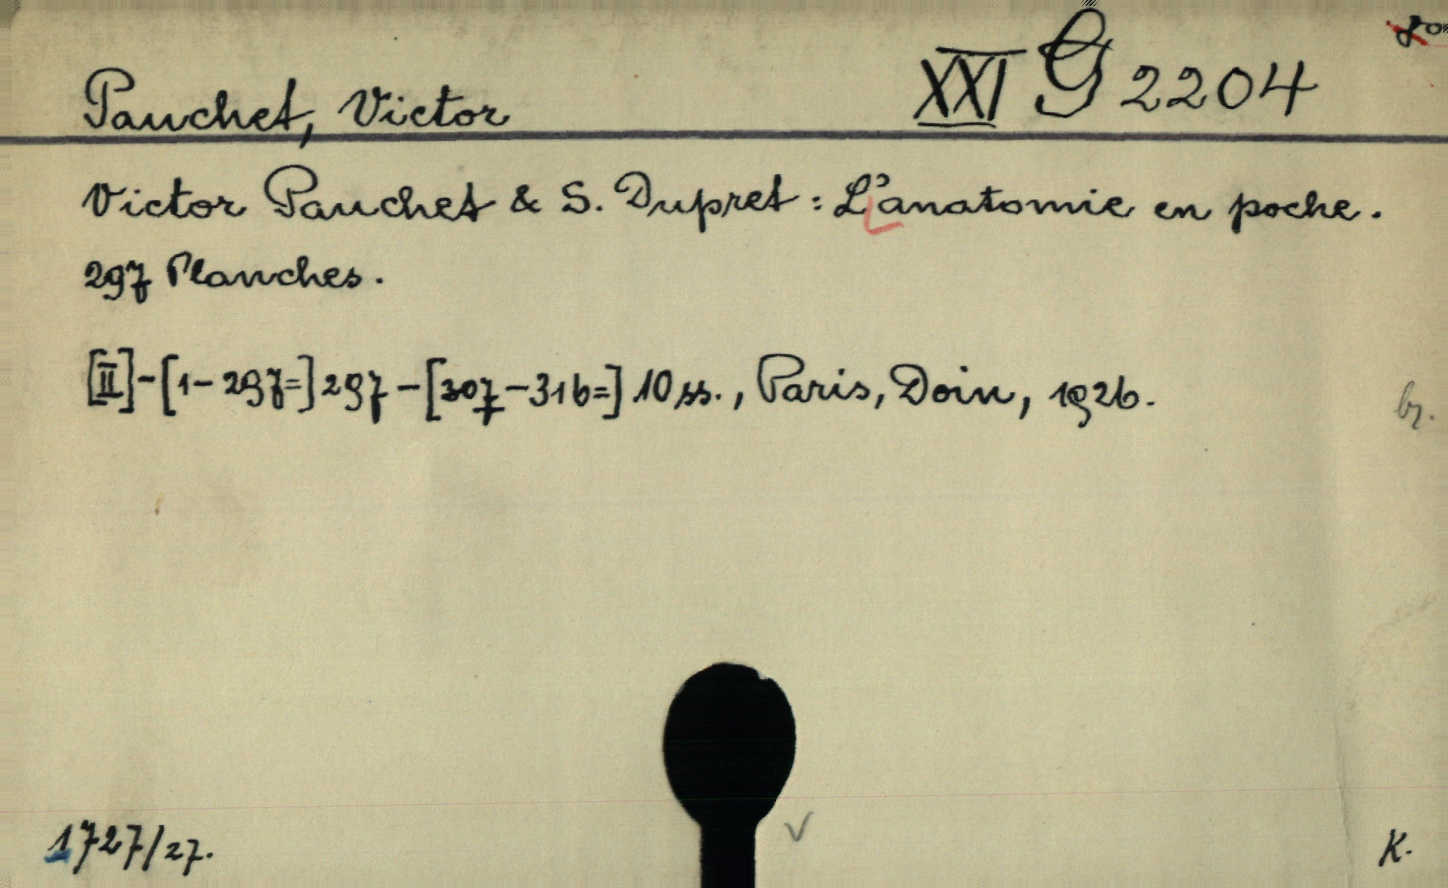 Pauchet, Victor XXI G 2204
Victor Pauchet & S. Dupret: L'anatomie en poche.
297 Planches.
[II]-[1-297=]297-[307-316=]10 ss., Paris, Doin, 1926.
1727/27.
K.